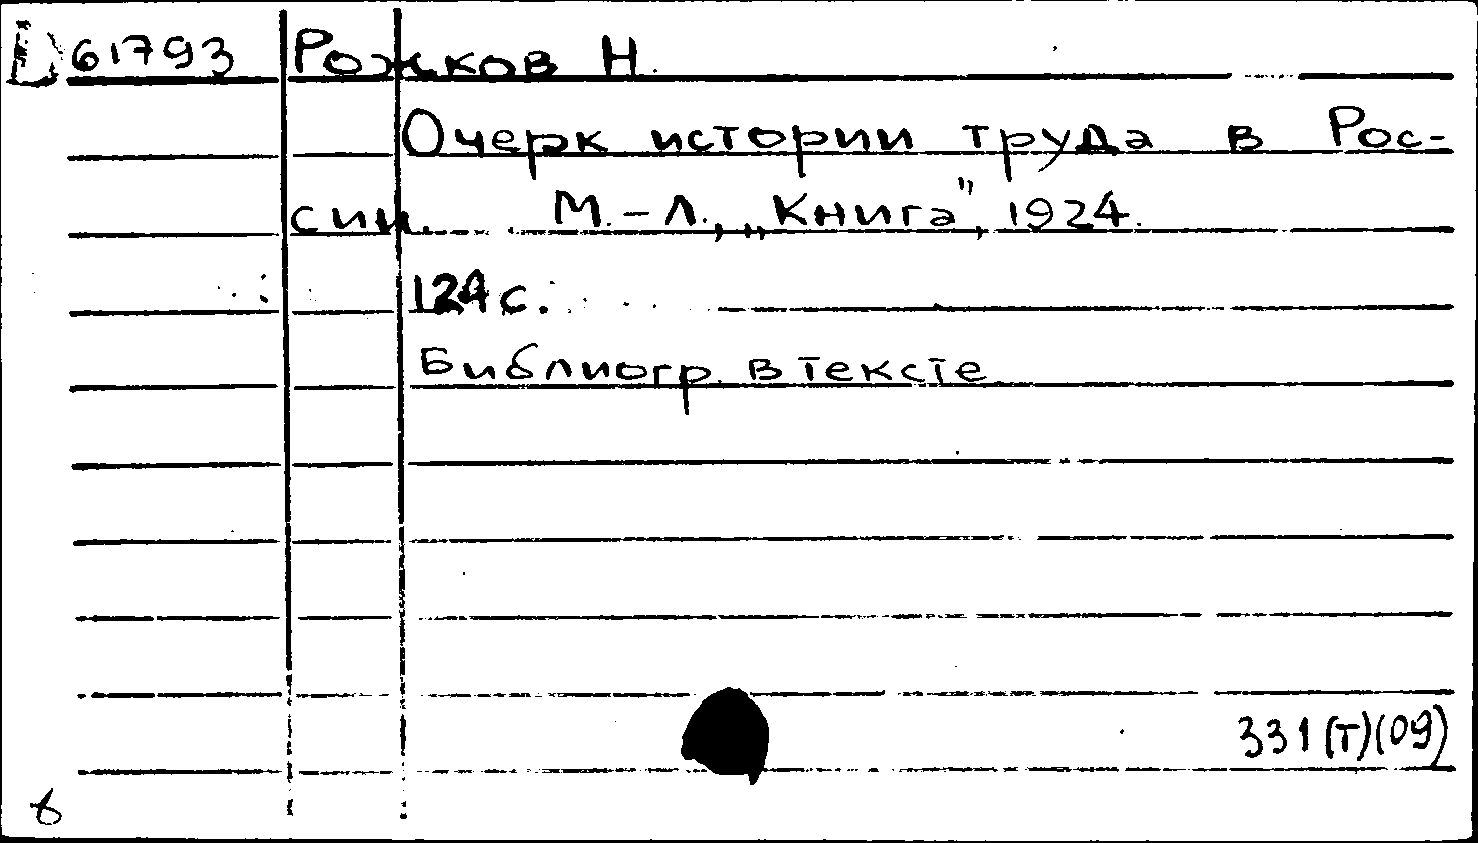 D 61793 Рожков Н.
Очерк истории труда в Рос-
сии. М.-Л., „Книга”, 1924.
124 с.
Библиогр. в тексте
331(Т)(09)